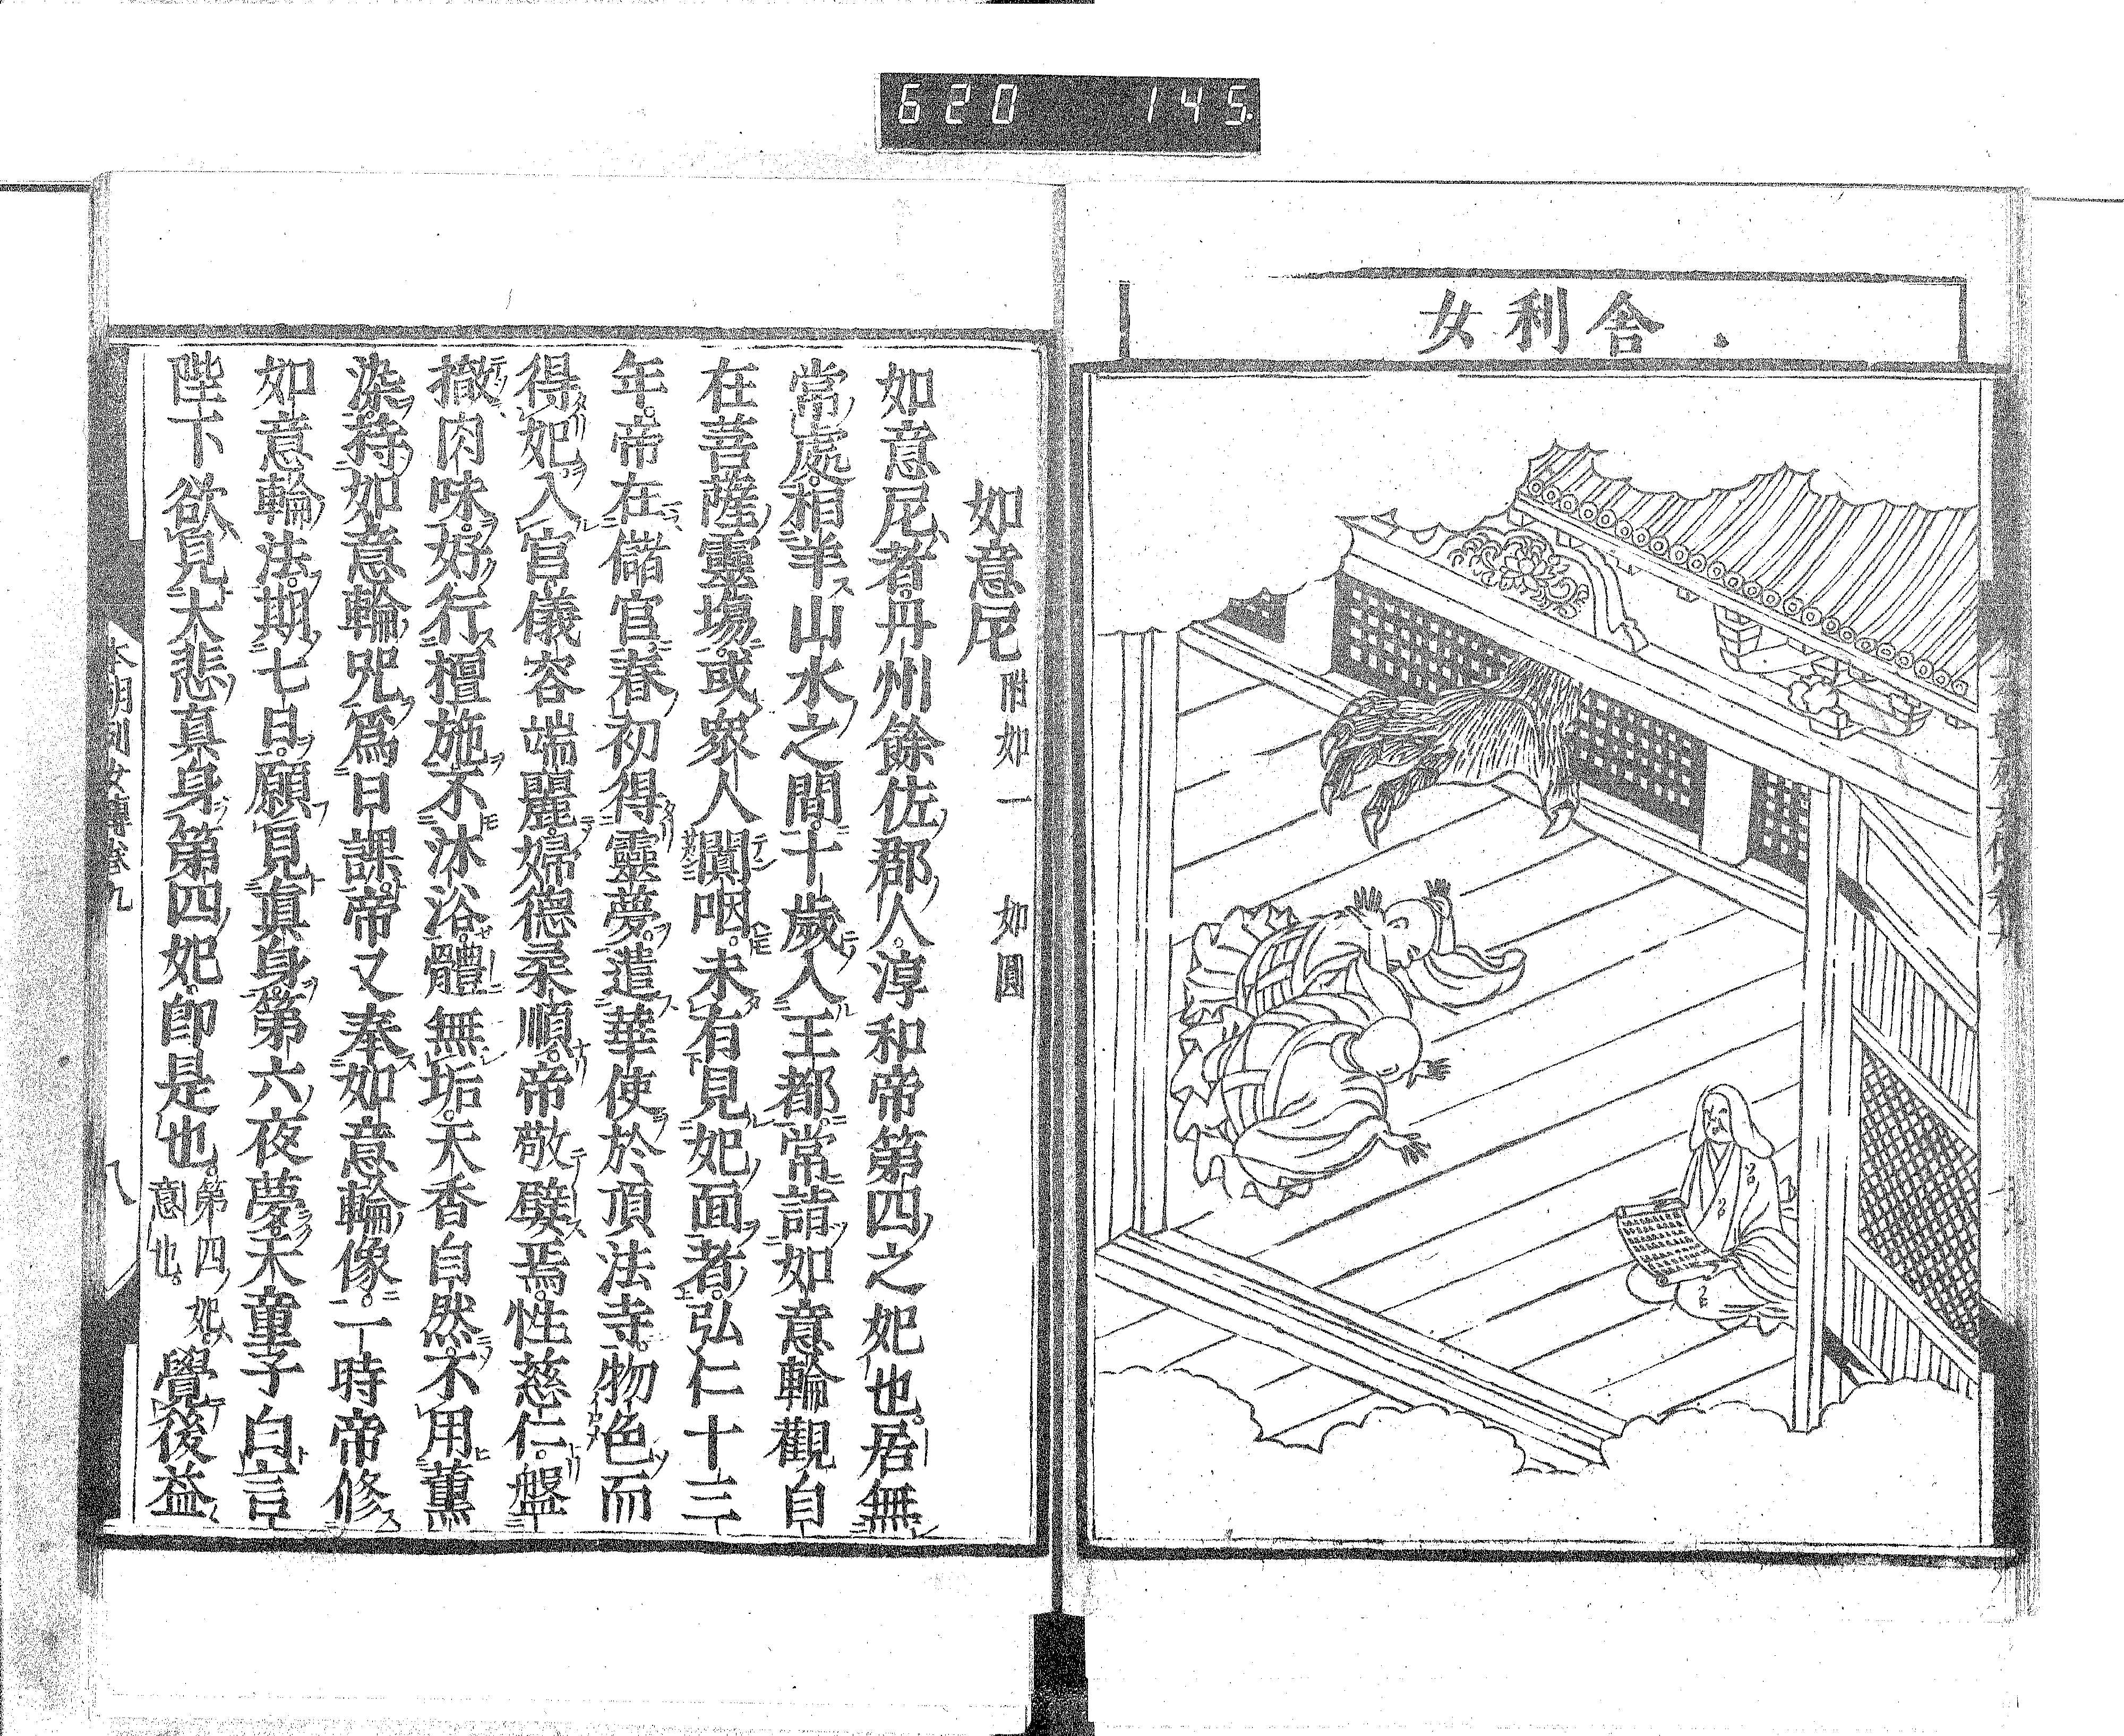 620 145
舎利女
如意尼 附如一 如圓
如意尼者丹州餘佐郡人淳和帝第四之妃也居無
常處相羊山水之間十歲入王都常詣如意輪觀自
在菩薩靈場或衆人闐咽未有見妃面者弘仁十三
年帝在儲宮春初得靈夢遣華使於頂法寺物色而
得妃入宮儀容端麗婦德柔順帝敬嬖焉性慈仁盤
撤肉味好行檀施不沐浴體無垢天香自然不用薫
染持如意輪呪爲日課帝又奉如意輪像一時帝修
如意輪法期七日願見真身第六夜夢天童子白言
陛下欲見大悲真身第四妃卽是也第四妃意也覺後益
本朝列女傳卷九
八